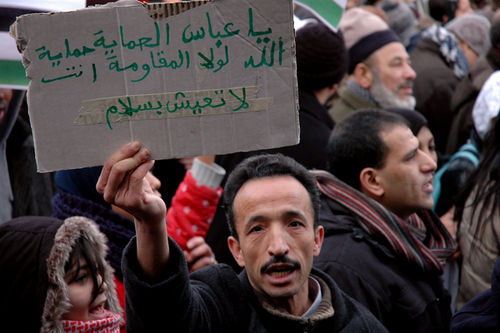 يا عباس الحماية حماية
الله لولا المقاومة انت
لا تعيش بسلام